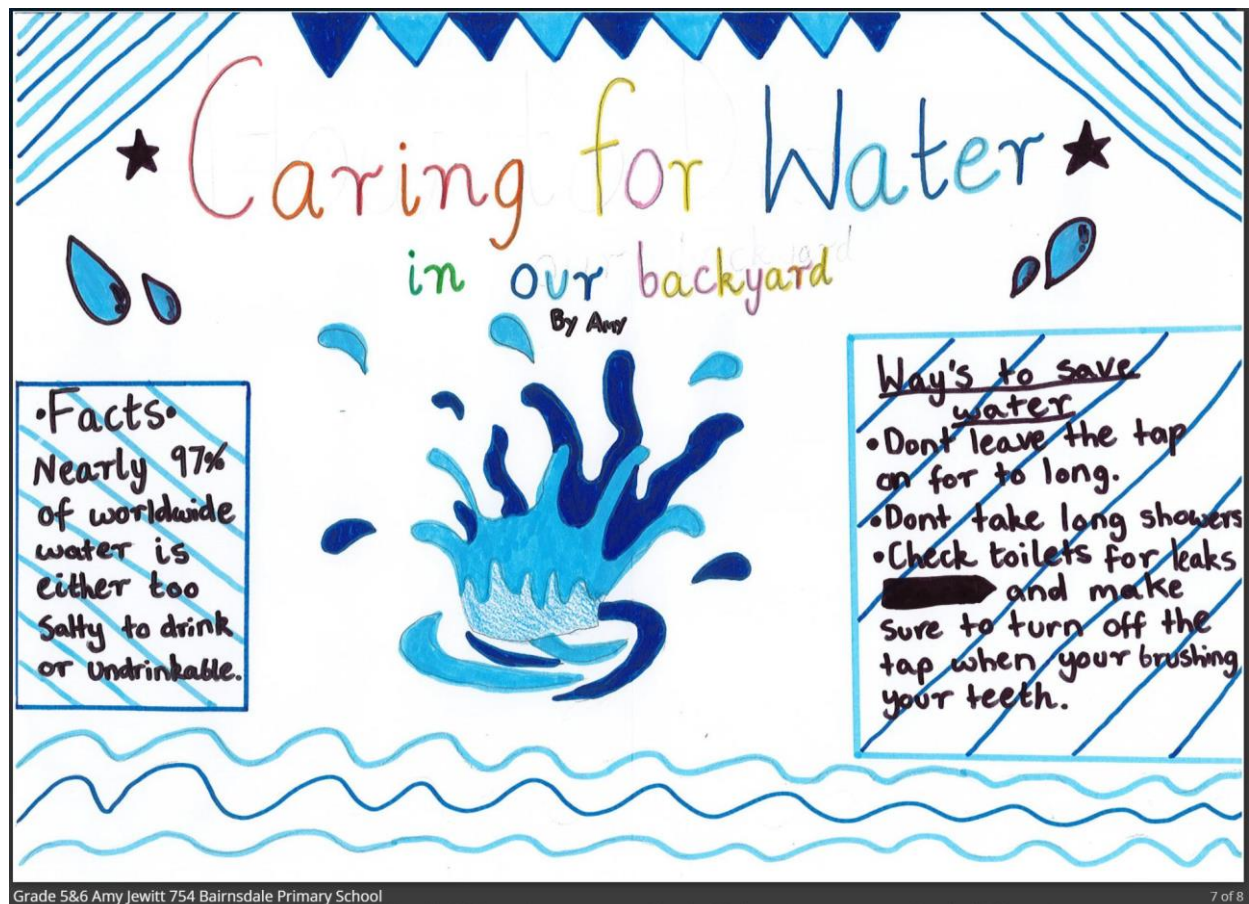 Caring for Water
in our backyard
By Amy
•Facts•
Nearly 97%
of worldwide
water is
either too
salty to drink
or undrinkable.
Way's to save
water
•Dont leave the tap
on for to long.
•Dont take long showers
•Check toilets for leaks
and make
sure to turn off the
tap when your brushing
your teeth.
Grade 5&6 Amy Jewitt 754 Bairnsdale Primary School
7 of 8